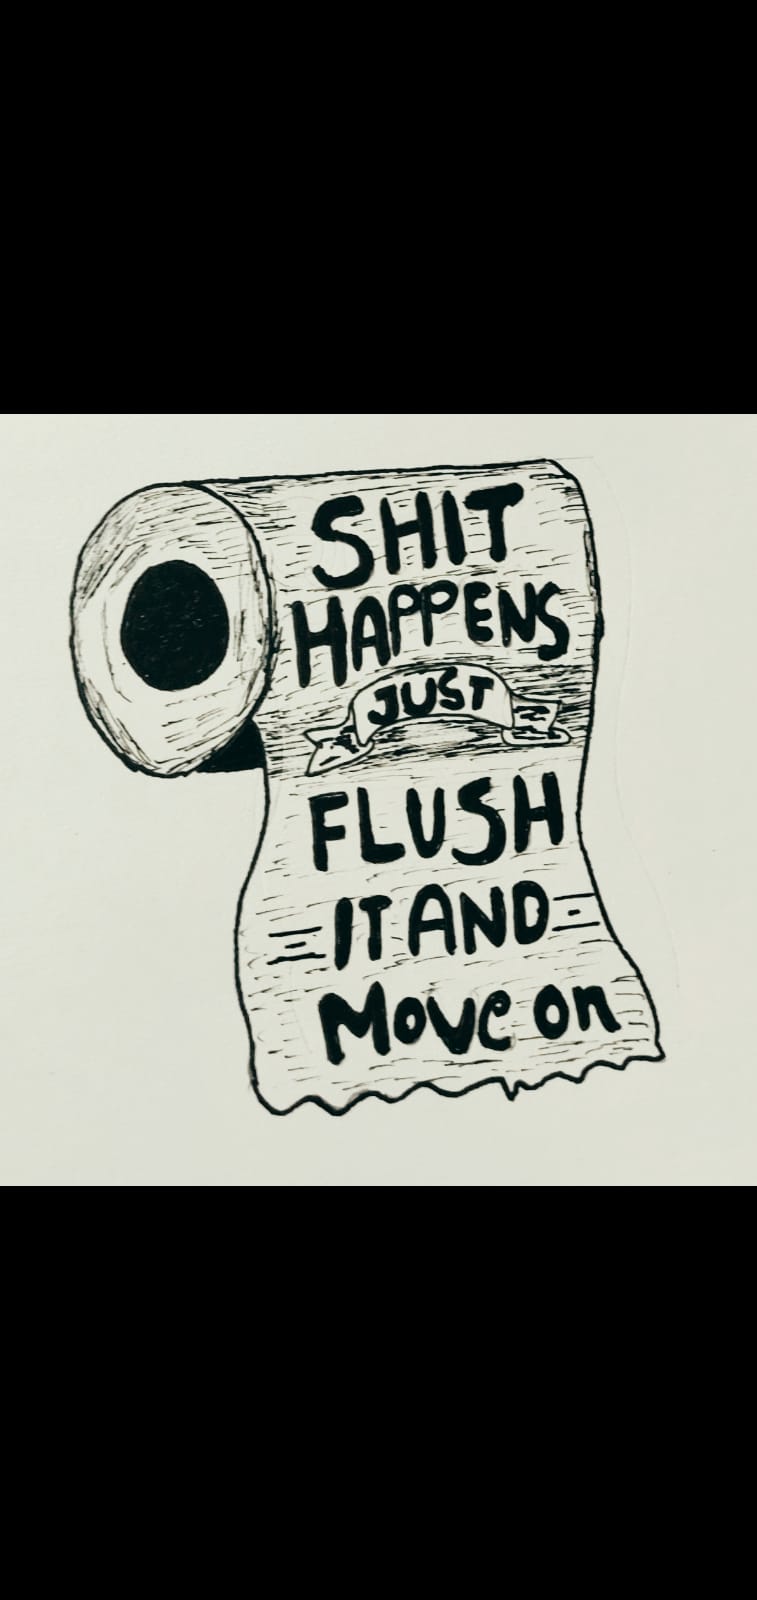 SHIT
HAPPENS
JUST
FLUSH
IT AND
Move on